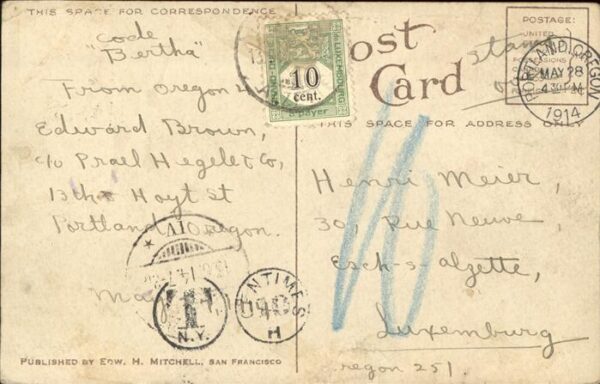 THIS SPACE FOR CORRESPONDENCE
Code
"Bertha"
From Oregon 4
Edward Brown,
c/o Prael Hegele & Co,
13th & Hoyt St
Portland Oregon.
Ma
PUBLISHED BY EDW. H. MITCHELL, SAN FRANCISCO
LUXEMBOURG
10
cent.
à payer
Post
Card
Stamp
POSTAGE:
UNITED
PORTLAND, OREGON
MAY 28
4 30 PM
1914
THIS SPACE FOR ADDRESS ONLY
10
Henri Meier,
30, Rue Neuve,
Esch-s-alzette,
Luxemburg
regon 251.
T
N.Y.
CENTIMES
H